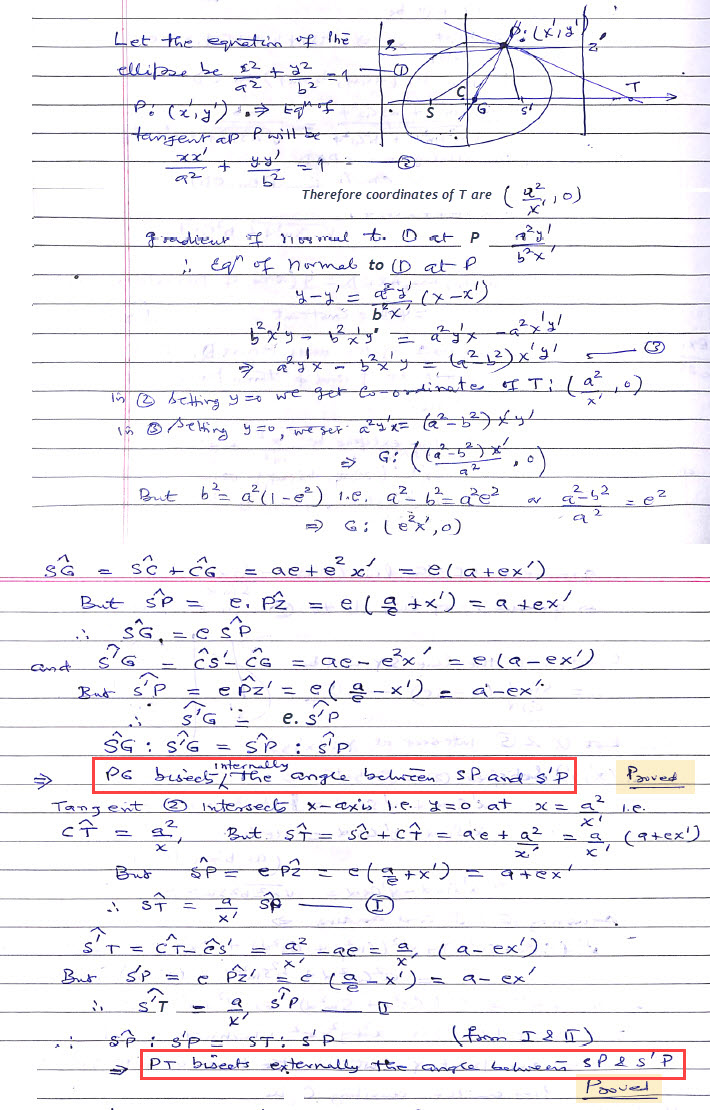 P: (x', y')
Z
Z'
C
S
G
S'
T
Let the equation of the
ellipse be x²/a² + y²/b² = 1 — ①
P: (x', y') ⇒ Eqⁿ of
tangent at P will be
xx'/a² + yy'/b² = 1 — ②
Therefore coordinates of T are (a²/x', 0)
gradient of normal to ① at P a²y'/b²x'
∴ Eqⁿ of normal to ① at P
y - y' = a²y'/b²x' (x - x')
b²x'y - b²x'y' = a²y'x - a²x'y'
⇒ a²y'x - b²x'y = (a² - b²) x'y' — ③
in ② setting y=0 we get Co-ordinate of T: (a²/x', 0)
in ③ setting y=0, we get a²y'x = (a² - b²) x'y'
⇒ G: ((a² - b²) x'/a², 0)
But b² = a²(1 - e²) i.e. a² - b² = a²e² or a² - b²/a² = e²
⇒ G: (e²x', 0)
SG = SC + CG = ae + e²x' = e(a + ex')
But SP = e. PZ = e(a/e + x') = a + ex'
∴ SG = e SP
and S'G = CS' - CG = ae - e²x' = e(a - ex')
But S'P = e PZ' = e(a/e - x') = a - ex'
∴ S'G = e. S'P
SG : S'G = SP : S'P
⇒ PG bisects internally the angle between SP and S'P Proved
Tangent ② intersects x-axis i.e. y=0 at x = a²/x' i.e.
CT = a²/x', But ST = SC + CT = ae + a²/x' = a/x' (a + ex')
But SP = e PZ = e(a/e + x') = a + ex'
∴ ST = a/x' SP — Ⓘ
S'T = CT - CS' = a²/x' - ae = a/x' (a - ex')
But S'P = e PZ' = e (a/e - x') = a - ex'
∴ S'T = a/x' S'P — II
∴ SP : S'P = ST : S'P (from I & II)
⇒ PT bisects externally the angle between SP & S'P
Proved